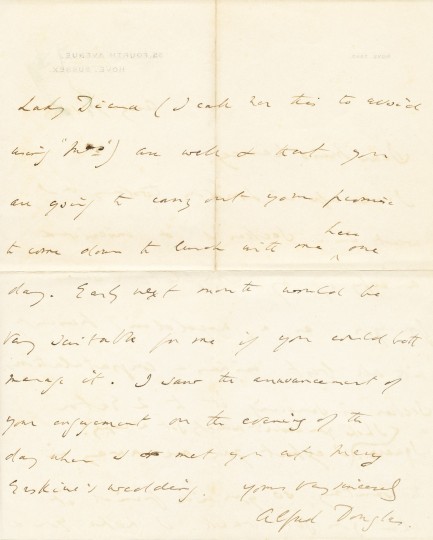 Lady Diana (I call her this to avoid
using "Mrs") are well & that you
are going to carry out your promise
to come down to lunch with me here one
day. Early next month would be
very suitable for me if you could both
manage it. I saw the announcement of
your engagement on the evening of the
day when I met you at Mary
Erskine's wedding. Yours very sincerely
Alfred Douglas.